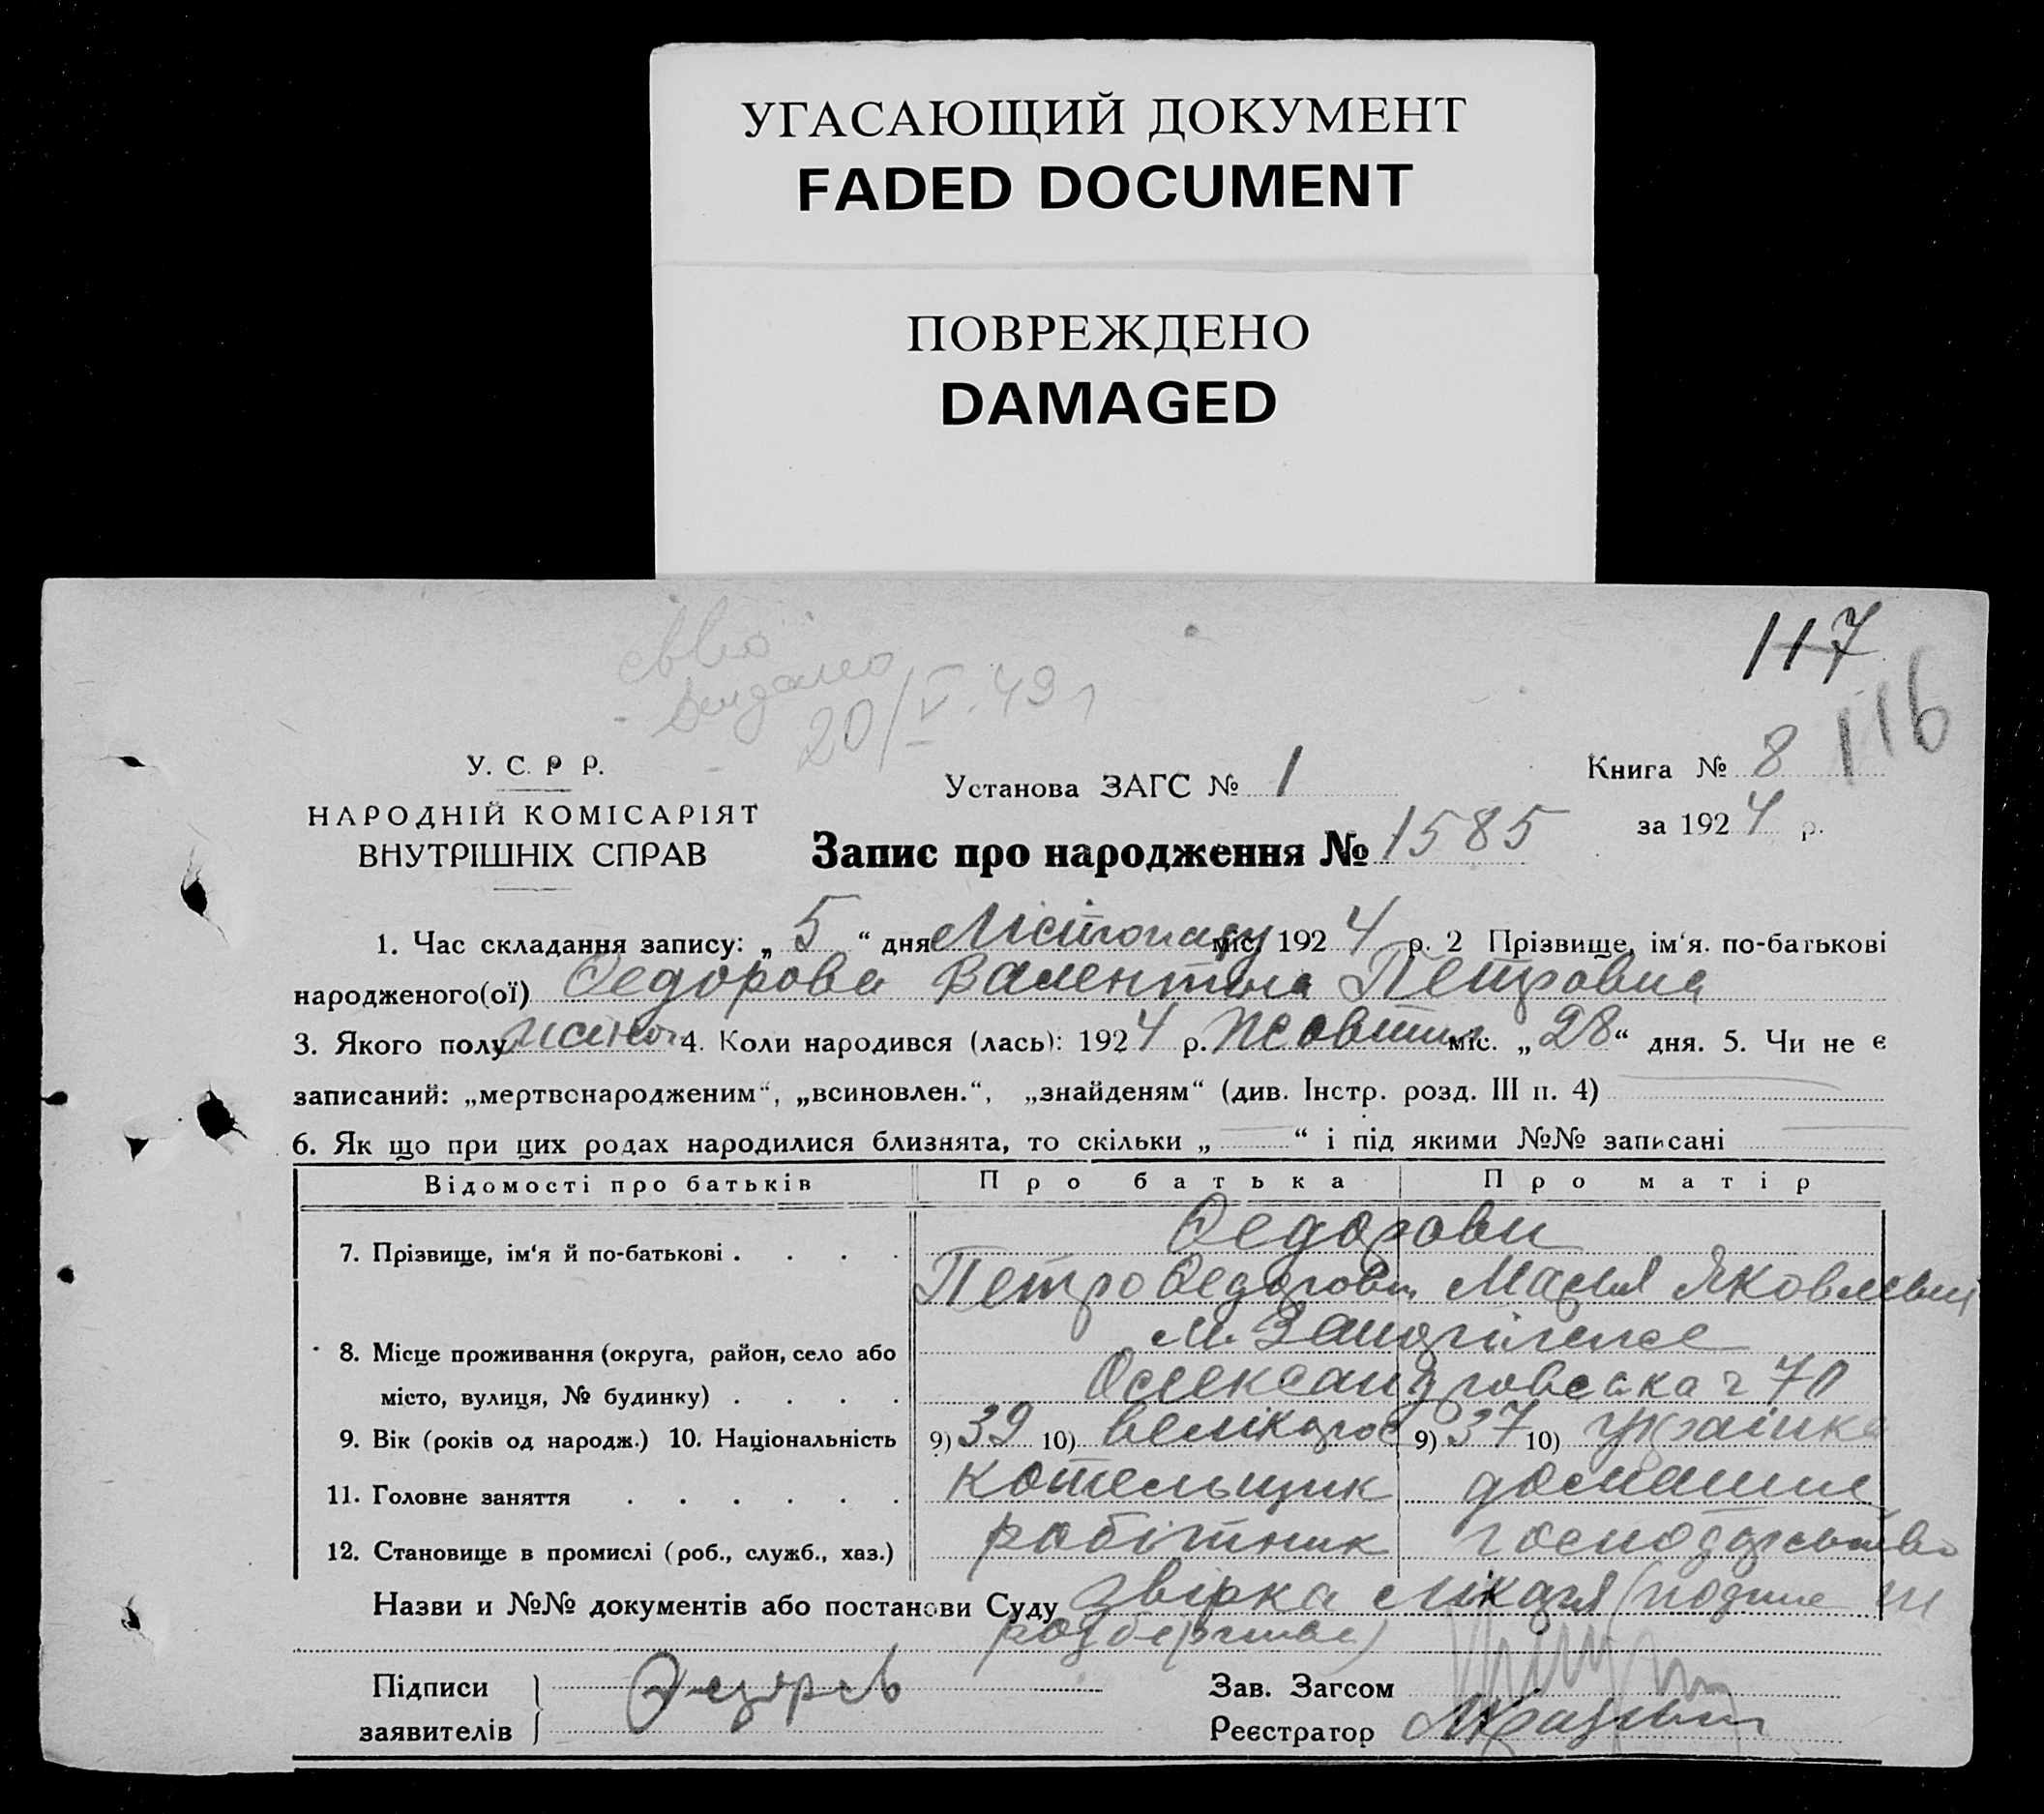 УГАСАЮЩИЙ ДОКУМЕНТ
FADED DOCUMENT
ПОВРЕЖДЕНО
DAMAGED
117
116
20/V.49
У. С. Р Р.
НАРОДНІЙ КОМІСАРІЯТ
ВНУТРІШНІХ СПРАВ
Установа ЗАГС № 1
Книга № 8
за 1924 р.
Запис про народження № 1585
1. Час складання запису: „ 5 “ дня Лістопаду міс. 1924 р. 2 Прізвище, ім‘я. по-батькові
народженого(ої) Федорова Валентина Петровна
3. Якого полу жіноч 4. Коли народився (лась): 1924 р. Жовтня міс. „ 28 “ дня. 5. Чи не є
записаний: „мертвонародженим“, „всиновлен.“, „знайденям“ (див. Інстр. розд. III п. 4)
6. Як що при цих родах народилися близнята, то скільки „ “ і під якими №№ записані
Відомості про батьків Про батька Про матір
Федорови
7. Прізвище, ім‘я й по-батькові . . . .
Петро Федорович Марія Яковлевна
м. Запоріжже
8. Місце проживання (округа, район, село або
місто, вулиця, № будинку) . . . . Олександровська 70
9. Вік (років од народж.) 10. Національність 9) 39 10) великорос 9) 37 10) українка
11. Головне заняття . . . . . . котельщик домашнє
12. Становище в промислі (роб., служб., хаз.) робітник господарство
Назви и №№ документів або постанови Суду звірка лікаря
Підписи
заявителів
Федоров
Зав. Загсом
Реєстратор